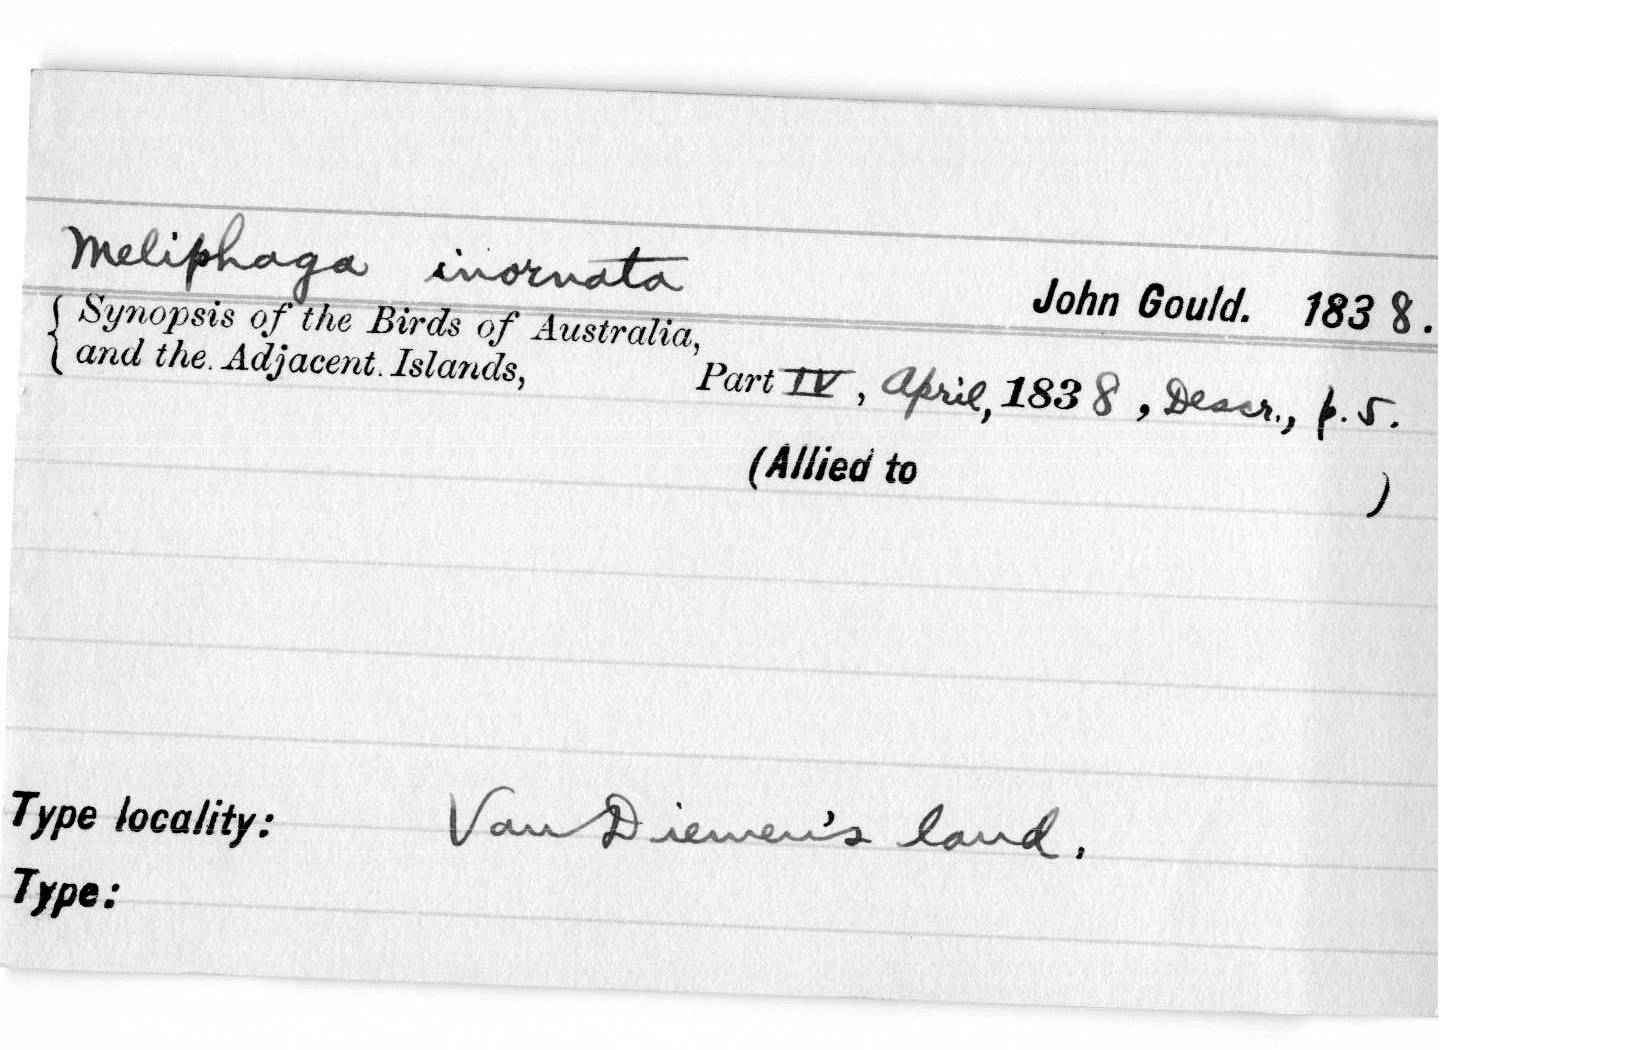 Meliphaga inornata
John Gould. 1838.
{ Synopsis of the Birds of Australia,
{ and the. Adjacent. Islands, Part IV, April, 1838, Descr., p. 5.
(Allied to )
Type locality: Van Diemen's land.
Type: